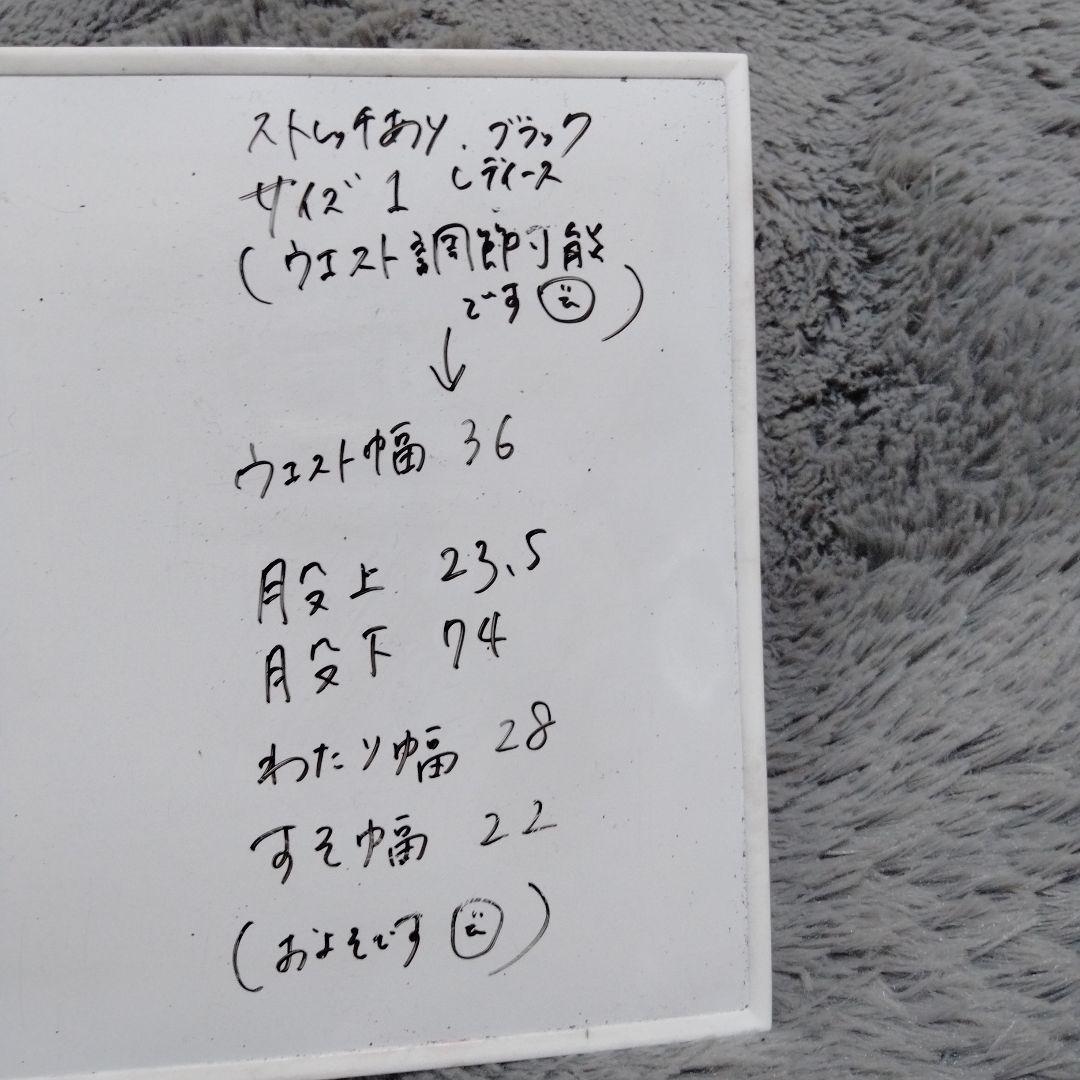 ストレッチあり、ブラック
サイズ 1 レディース
(ウエスト調節可能
です)
↓
ウエスト幅 36
股上 23.5
股下 74
わたり幅 28
すそ幅 22
(およそです)